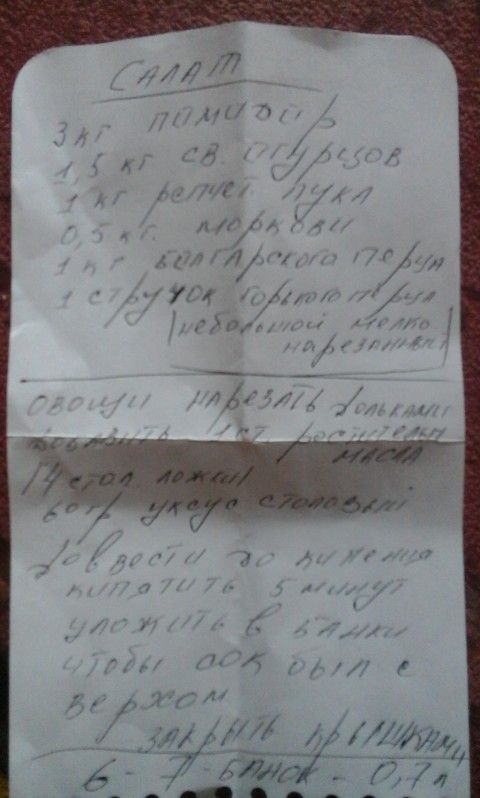 САЛАТ
3 кг ПОМИДОР
1,5 кг СВ. ОГУРЦОВ
1 кг репчат. лука
0,5 кг. моркови
1 кг БОЛГАРСКОГО перца
1 стручок горького перца
(небольшой мелко
нарезанный)
овощи нарезать дольками
добавить 1 ст. растительн
МАСЛА
(4 стол ложки)
60 гр уксус столовый
довести до кипения
кипятить 5 минут
уложить в банки
чтобы сок был с
верхом
ЗАКРЫТЬ крышками
6 - 7 - БАНОК - 0,7 л